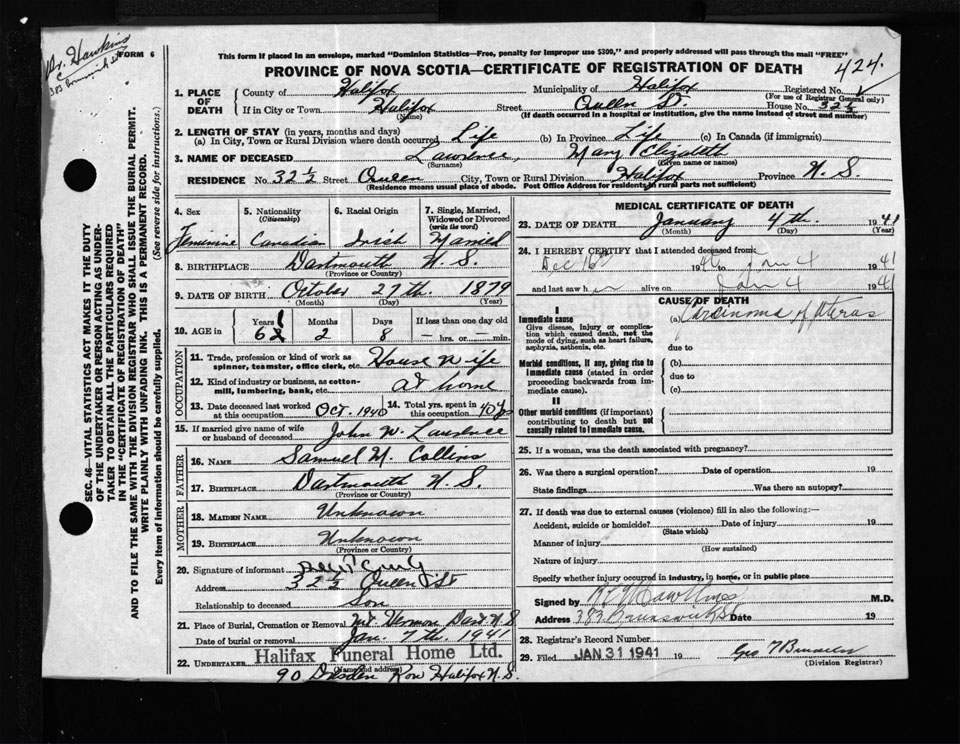 Dr. Hawkins
FORM 6
This form if placed in an envelope, marked "Dominion Statistics—Free, penalty for improper use $300," and properly addressed will pass through the mail "FREE"
PROVINCE OF NOVA SCOTIA—CERTIFICATE OF REGISTRATION OF DEATH
424.
SEC. 46—VITAL STATISTICS ACT MAKES IT THE DUTY
OF THE UNDERTAKER OR PERSON ACTING AS UNDER-
TAKER TO OBTAIN ALL THE PARTICULARS REQUIRED
IN THE "CERTIFICATE OF REGISTRATION OF DEATH"
AND TO FILE THE SAME WITH THE DIVISION REGISTRAR WHO SHALL ISSUE THE BURIAL PERMIT.
WRITE PLAINLY WITH UNFADING INK. THIS IS A PERMANENT RECORD.
Every item of information should be carefully supplied. (See reverse side for instructions.)
1. PLACE OF DEATH
County of Halifax Municipality of Halifax Registered No.
(For use of Registrar General only)
If in City or Town Halifax Street Queen St. House No. 32½
(Name) (If death occurred in a hospital or institution, give the name instead of street and number)
2. LENGTH OF STAY (in years, months and days)
(a) In City, Town or Rural Division where death occurred Life (b) In Province Life (c) In Canada (if immigrant)
3. NAME OF DECEASED Lawrence, Mary Elizabeth
(Surname) (Given name or names)
RESIDENCE No. 32½ Street Queen City, Town or Rural Division Halifax Province N. S.
(Residence means usual place of abode. Post Office Address for residents in rural parts not sufficient)
4. Sex 5. Nationality (Citizenship) 6. Racial Origin 7. Single, Married, Widowed or Divorced (write the word)
Feminine Canadian Irish Married
8. BIRTHPLACE Dartmouth N. S.
(Province or Country)
9. DATE OF BIRTH October 27th 1879
(Month) (Day) (Year)
10. AGE in Years Months Days If less than one day old
2 8 hrs. or min.
OCCUPATION
11. Trade, profession or kind of work as spinner, teamster, office clerk, etc. House Wife
12. Kind of industry or business, as cotton-mill, lumbering, bank, etc. at home
13. Date deceased last worked at this occupation Oct. 1940 14. Total yrs. spent in this occupation 40 yrs
15. If married give name of wife or husband of deceased John W. Lawrence
FATHER
16. NAME Samuel M. Collins
17. BIRTHPLACE Dartmouth N. S.
(Province or Country)
MOTHER
18. MAIDEN NAME Unknown
19. BIRTHPLACE Unknown
(Province or Country)
20. Signature of informant
Address 32½ Queen St
Relationship to deceased Son
21. Place of Burial, Cremation or Removal Mt Vernon Dart N S
Date of burial or removal Jan. 7th. 1941
22. UNDERTAKER Halifax Funeral Home Ltd.
(Name and address)
90 Dresden Row Halifax N. S.
MEDICAL CERTIFICATE OF DEATH
23. DATE OF DEATH January 4th. 1941
(Month) (Day) (Year)
24. I HEREBY CERTIFY that I attended deceased from:
Dec 19 to Jan 4 1941
and last saw her alive on Jan 4 1941
CAUSE OF DEATH
I
Immediate cause
Give disease, injury or complica-
tion which caused death, not the
mode of dying, such as heart failure,
asphyxia, asthenia, etc.
(a) Carcinoma of Uterus
due to
Morbid conditions, if any, giving rise to
immediate cause (stated in order
proceeding backwards from im-
mediate cause).
(b)
due to
(c)
II
Other morbid conditions (if important)
contributing to death but not
causally related to immediate cause.
25. If a woman, was the death associated with pregnancy?
26. Was there a surgical operation? Date of operation 19
State findings Was there an autopsy?
27. If death was due to external causes (violence) fill in also the following:—
Accident, suicide or homicide? Date of injury 19
(State which)
Manner of injury
(How sustained)
Nature of injury
Specify whether injury occurred in industry, in home, or in public place
Signed by M.D.
Address 383 Brunswick St Date 19
28. Registrar's Record Number
29. Filed JAN 31 1941 19 Geo
(Division Registrar)